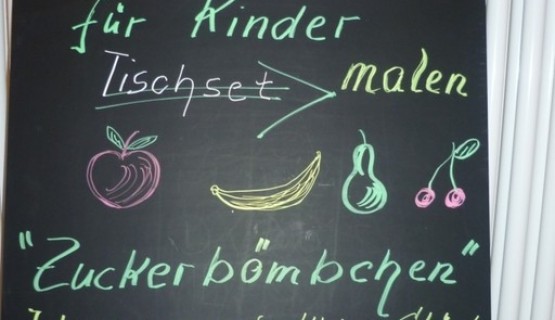 für Kinder
Tischset malen
"Zuckerbömbchen"